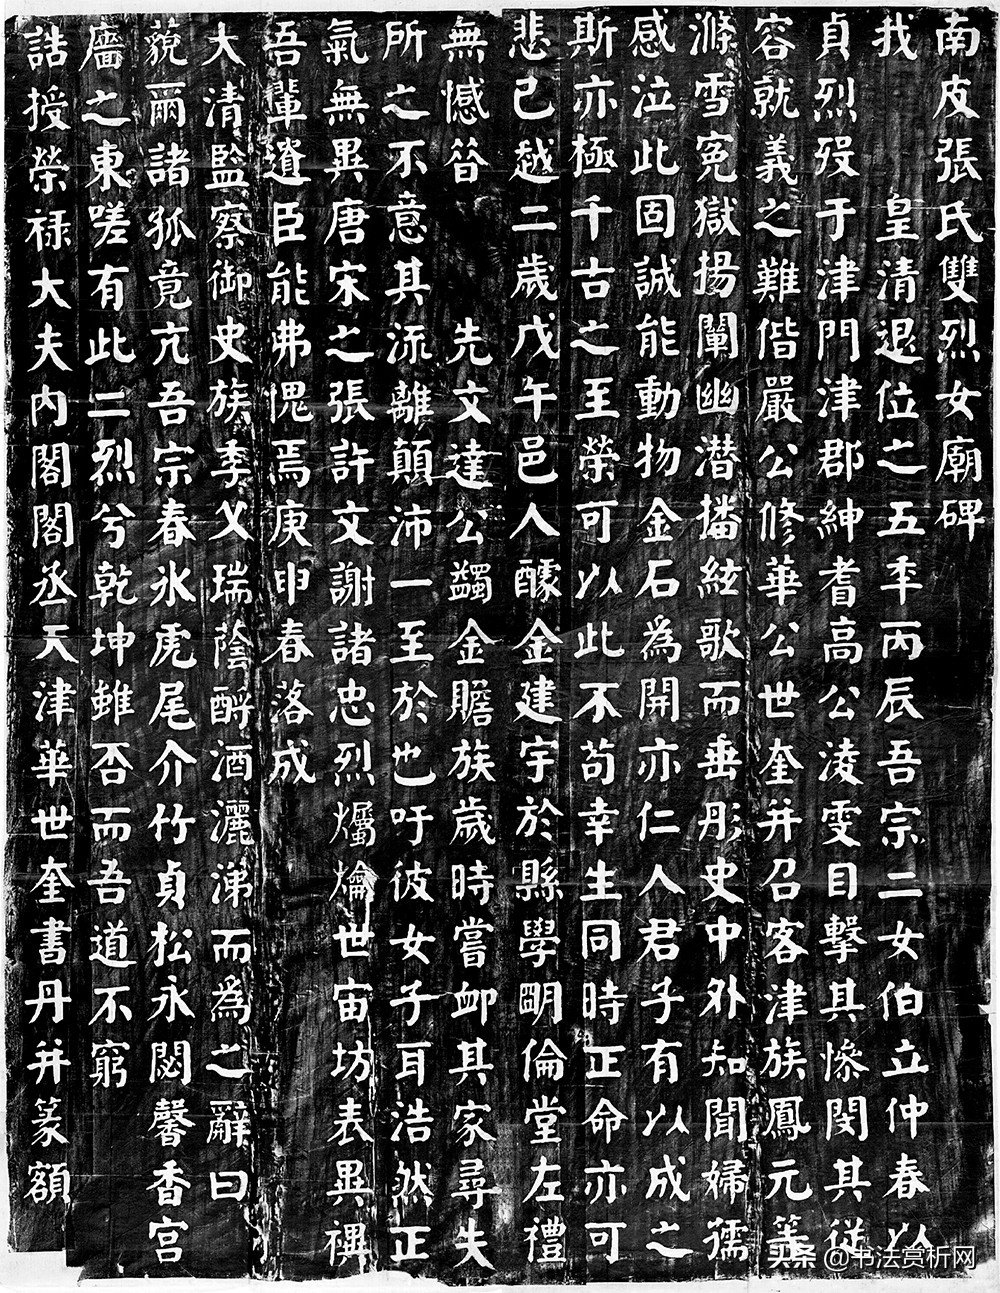 南皮張氏雙烈女廟碑
我　皇清退位之五年丙辰吾宗二女伯立仲春以
貞烈歿于津門津郡紳耆高公淩雯目擊其慘閔其從
容就義之難偕嚴公修華公世奎并召客津族鳳元籌
滌雪冤獄揚闡幽潜播絃歌而垂彤史中外知聞婦孺
感泣此固誠能動物金石為開亦仁人君子有以成之
斯亦極千古之至榮可以此不苟幸生同時正命亦可
悲已越二歲戊午邑人醵金建宇於縣學明倫堂左禮
無憾答　先文達公蠲金贍族歲時嘗卹其家尋失
所之不意其流離顛沛一至於也吁彼女子耳浩然正
氣無異唐宋之張許文謝諸忠烈爥爚世宙坊表異禩
吾輩遺臣能弗愧焉庚申春落成
大清監察御史族季父瑞蔭酹酒灑涕而為之辭曰
藐爾諸狐竟亢吾宗春氷虎尾介竹貞松永閟馨香宫
廧之東嗟有此二烈兮乾坤雖否而吾道不窮
誥授榮禄大夫内閣閣丞天津華世奎書丹并篆額
@书法赏析网